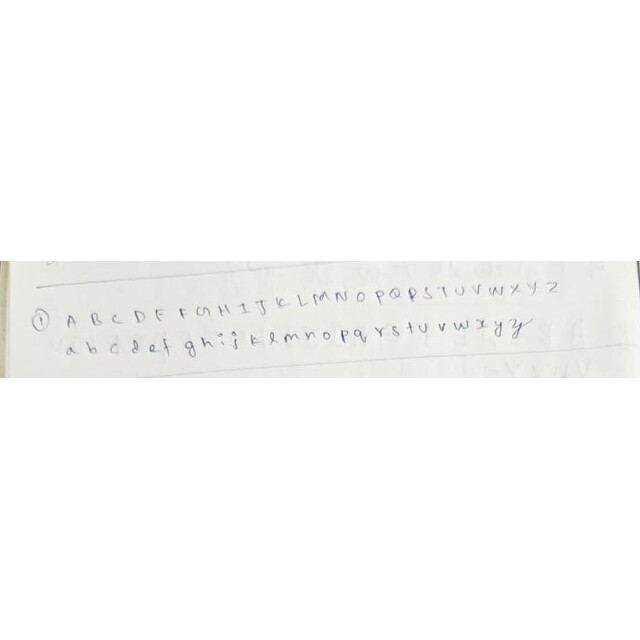 ① A B C D E F G H I J K L M N O P Q R S T U V W X Y Z
a b c d e f g h i j k l m n o p q r s t u v w x y z